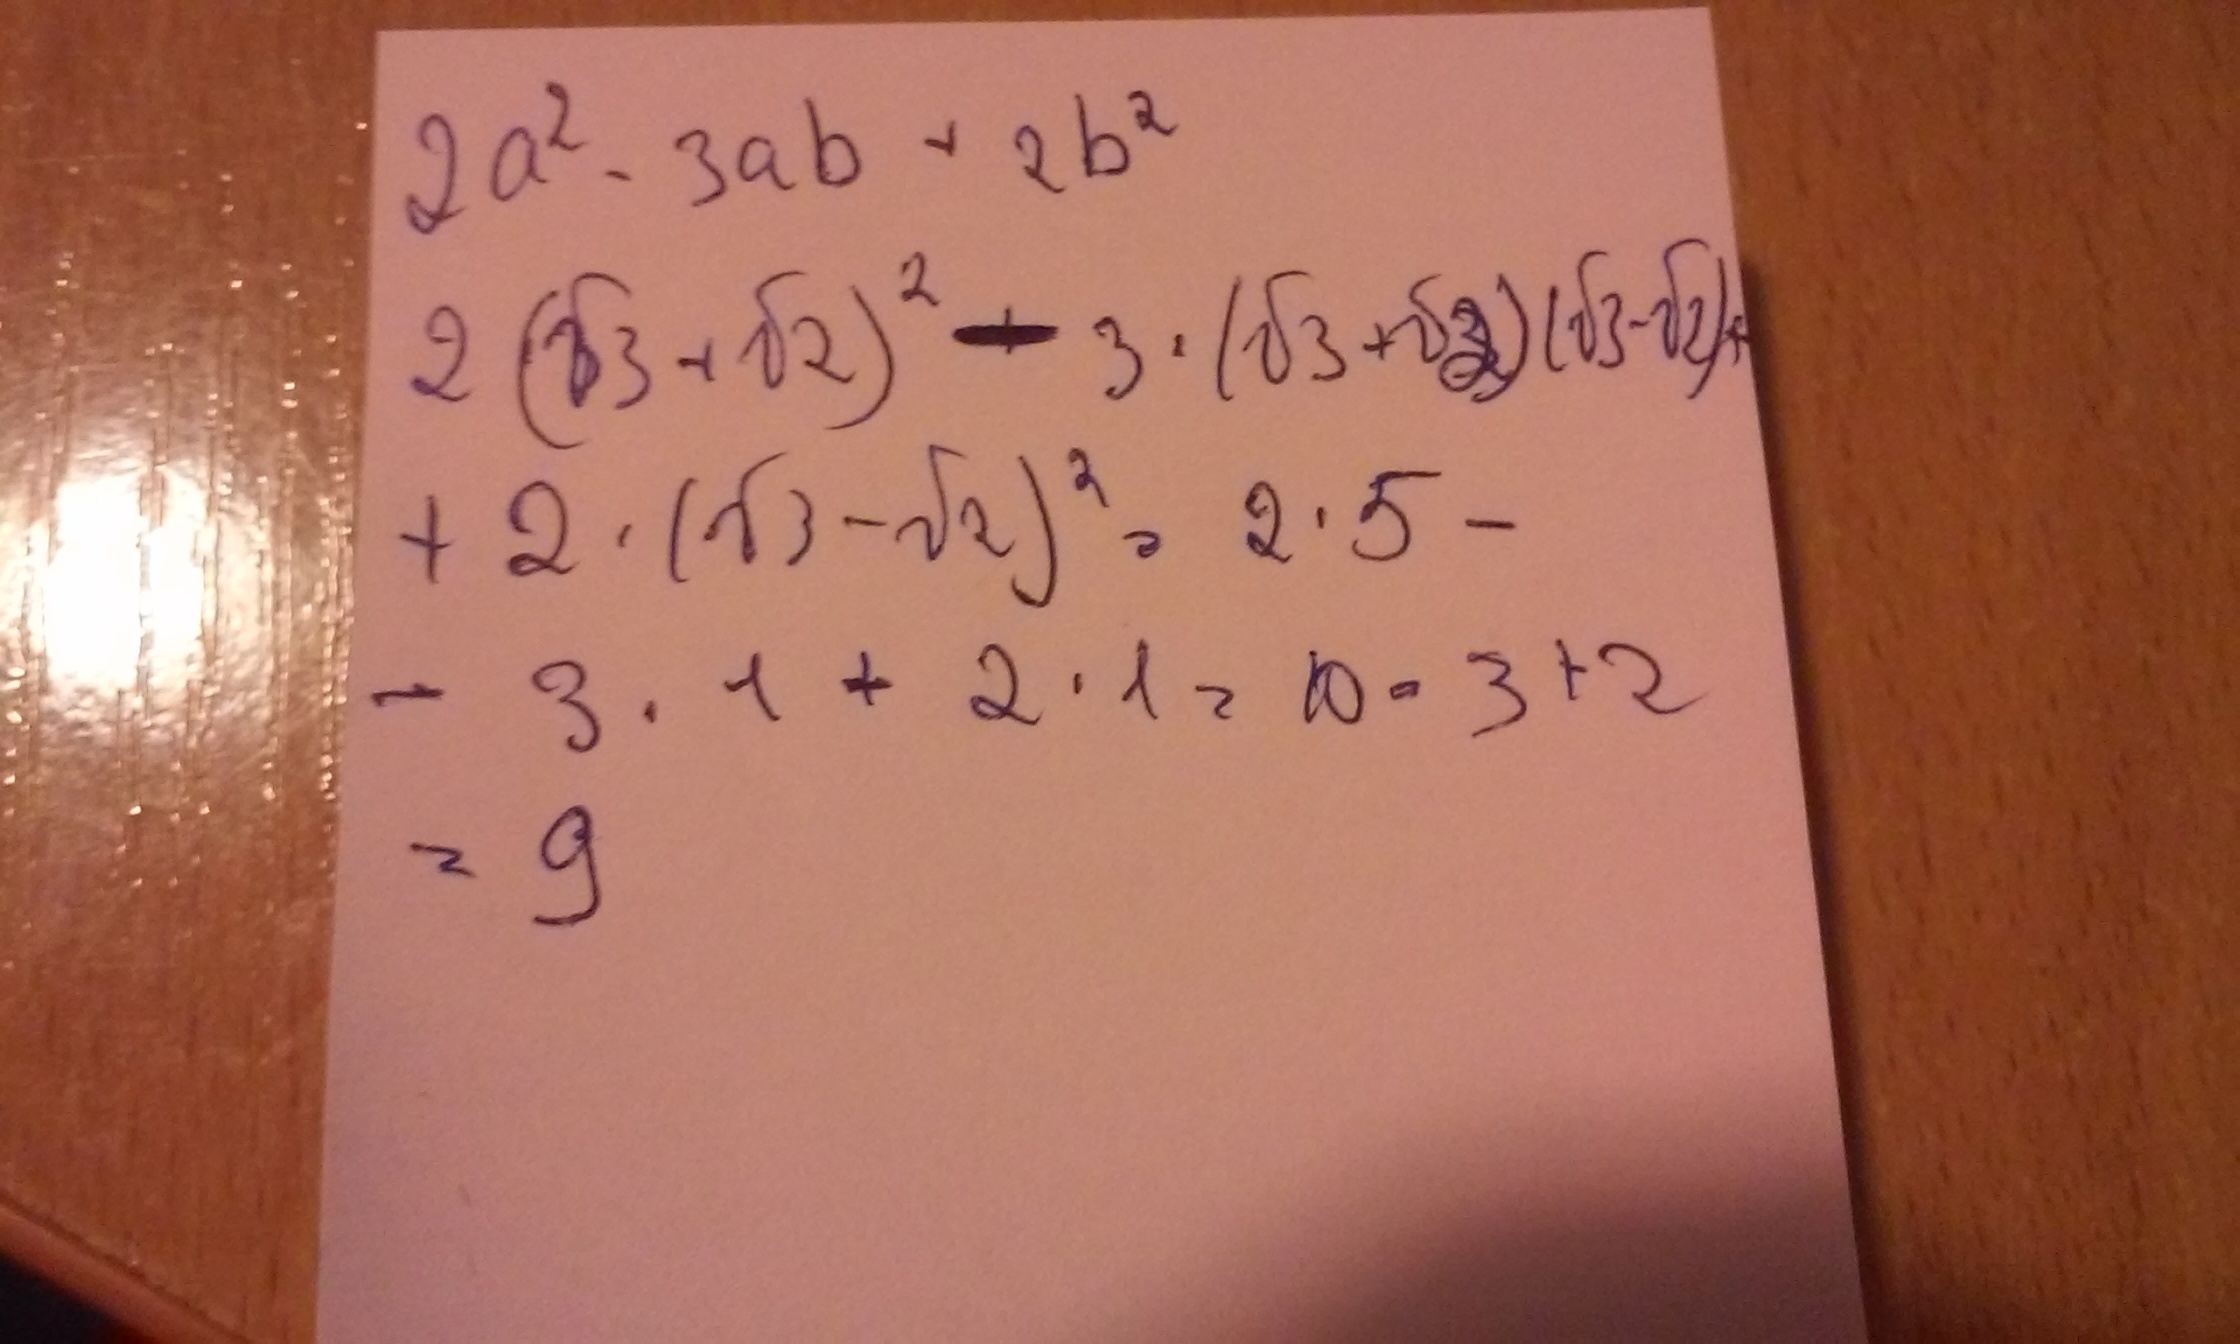 2a² - 3ab + 2b²
2(√3+√2)² - 3·(√3+√2)(√3-√2)+
+ 2·(√3-√2)² = 2·5 -
- 3·1 + 2·1 = 10 - 3+2
= 9